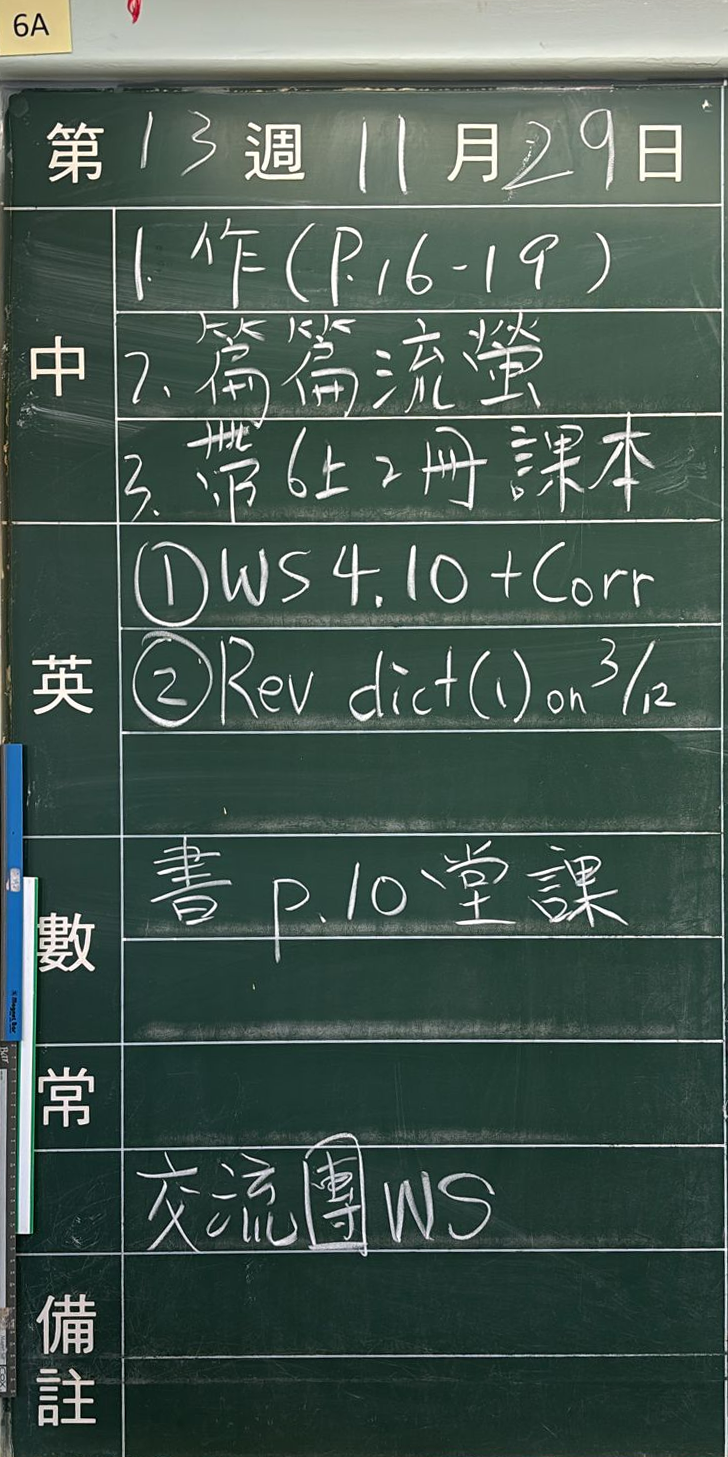 6A
第13週 11月29日
中
1. 作(P.16-19)
2. 篇篇流螢
3. 帶6上2冊課本
英
①WS 4.10 +Corr
②Rev dict(1) on 3/12
數
書 p.10、堂課
常
交流團WS
備註